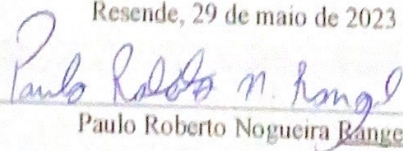 Resende, 29 de maio de 2023
Paulo Roberto N. Rangel
Paulo Roberto Nogueira Range